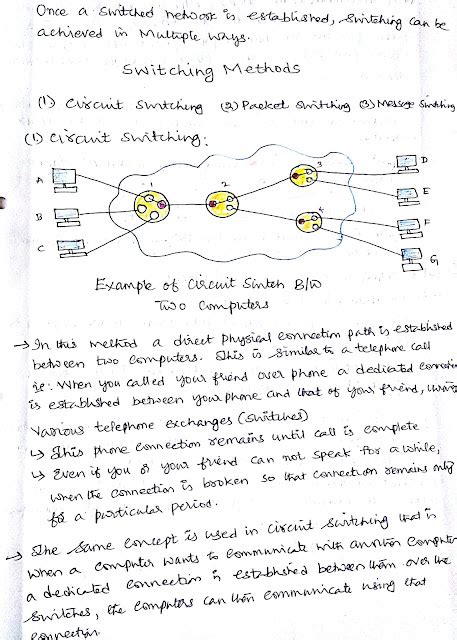 Once a switched network is established, switching can be
achieved in Multiple ways.
Switching Methods
(1) Circuit switching (2) Packet switching (3) Message Switching
(1) Circuit switching:
A
B
C
1
2
3
4
D
E
F
G
Example of Circuit Switch B/W
Two Computers
→ In this method a direct Physical connection path is established
between two computers. This is similar to a telephone call
ie: When you called your friend over phone a dedicated connection
is established between your phone and that of your friend, using
Various telephone exchanges (switches)
↳ This phone connection remains until call is complete
↳ Even if you or your friend can not speak for a while,
when the connection is booken so that connection remains only
for a particular period.
→ The same concept is used in circuit switching that is
when a computer wants to communicate with another computer
a dedicated connection is established between them over the
switches, the computers can then communicate using that
connection.